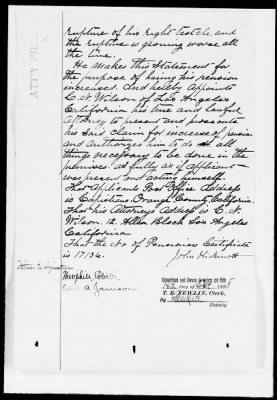 rupture of his right testcle and
the rupture is growing worse all
the time.
He Makes this Statement for
the purpose of having his pension
increased. And hereby appoints
C. N. Wilson of Los Angeles
California his true and lawful
Attorney to present and prosecute
his said Claim for increase of pension
and authorizes him to do all
things necessary to be done in the
premises. as fully as if applicant
was present and acting himself.
That Applicants Post Office Address
is Capistrano, Orange County California.
That his Attorneys Address is C. N.
Wilson. 12. Allen Block Los Angeles
California
That the No of Pensioners Certificate
is 17136.
John
Witness to signature
Theophile
A. Jamison
Subscribed and Sworn to before me this
day of
T. E. NEWLIN, Clerk,
By
Deputy.
ATTY